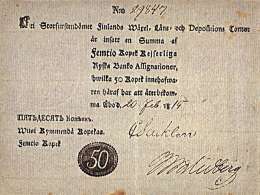 Nro 21847
Uti Storfurstendömet Finlands Wäxel, Låne- och Depositions Contor
är insatt en Summa af
Femtio Kopek Kejserliga
Ryska Banko Assignationer,
hwilka 50 Kopek innehafwaren
häraf har att återbekomma
Åbo d. 20 Feb 1815
ПЯТЬДЕСЯТЪ Копѣекъ.
Wiisi Kymmendä Kopekaa.
Femtio Kopek
50